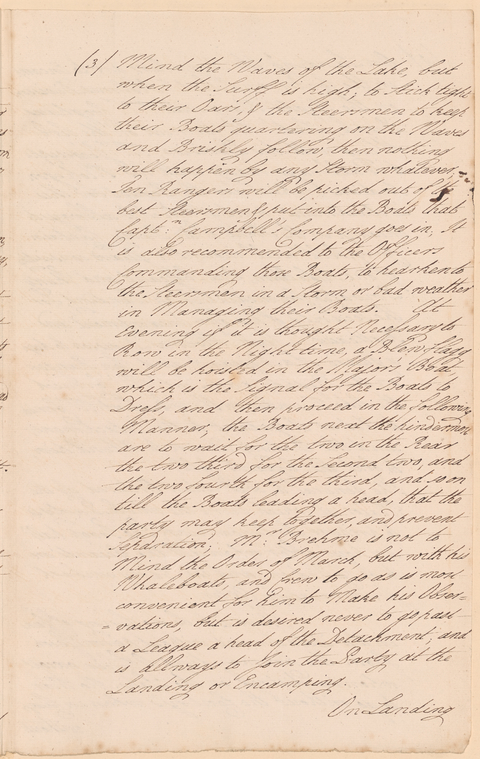 (3) Mind the Waves of the Lake, but
when the Surff is high, to stick tight
to their Oars, & the Steersmen to keep
their Boats quartering on the Waves
and Briskly follow, then nothing
will happen by any Storm whatever,
Ten Rangers will be picked out of the
best Steersmen & put into the Boats that
Capt.n Campbell's Company goes in, It
is also recommended to the Officers
Commanding those Boats, to hearken to
the Steersmen in a Storm or bad weather
in Managing their Boats. At
Evening if it is thought Necessary to
Row in the Night time, a Blew flagg
will be hoisted in the Major's Boat
which is the Signal for the Boats to
Dress, and then proceed in the following
Manner, the Boats next the hindermost
are to wait for the two in the Rear
the two third for the Second two, and
the two fourth for the third, and so on
till the Boats leading a head, that the
party may keep together, and prevent
Separation; M.r Brehme is not to
Mind the Order of March, but with his
Whaleboats, and frew to go as is most
convenient for him to Make his Obser-
=vations, but is desired never to go past
a League a head of the Detachment, and
is Allways to Join the Party at the
Landing or Encamping.
On Landing